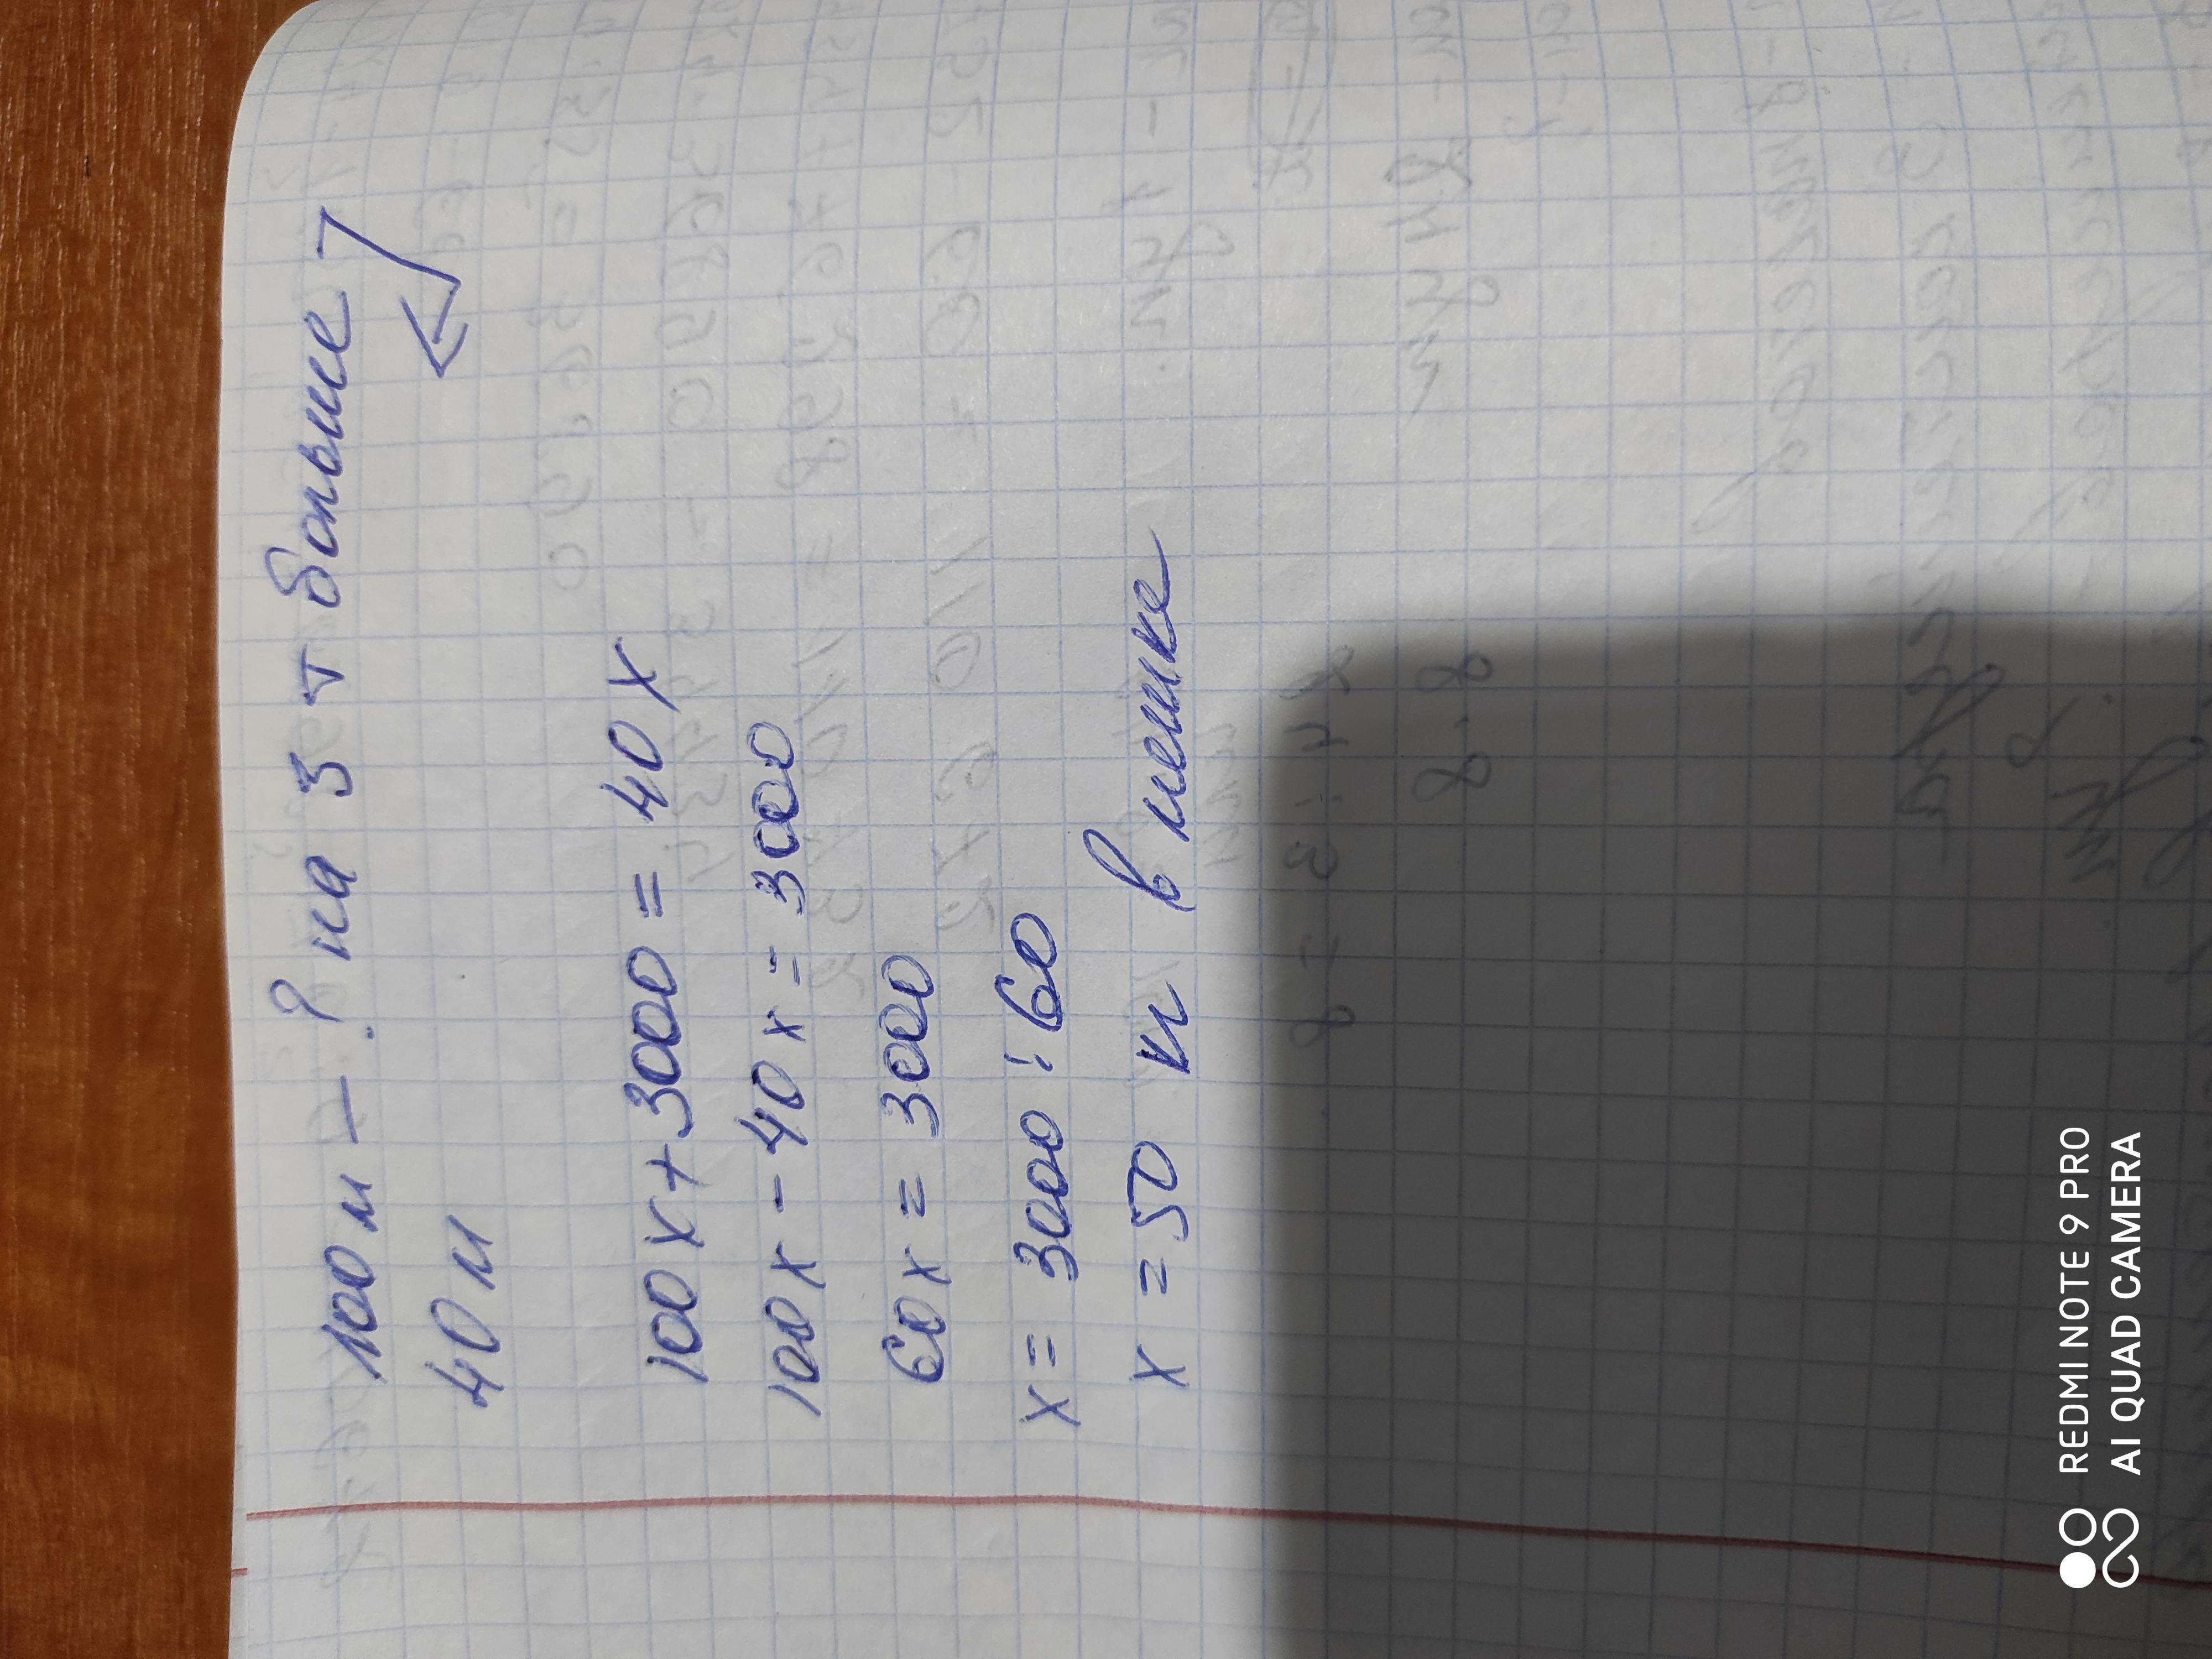 100 м - ? на 3 т больше
40 м
100 х + 3000 = 40 х
100 х - 40 х = 3000
60 х = 3000
х = 3000 : 60
х = 50 кг в мешке
REDMI NOTE 9 PRO
AI QUAD CAMERA